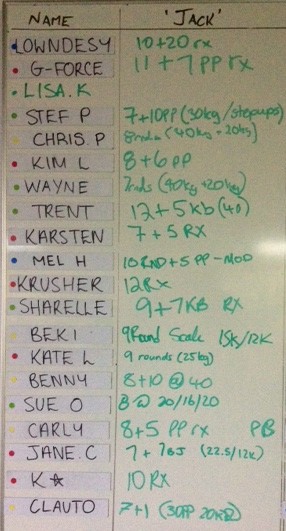 NAME 'JACK'
LOWNDESY 10+20 rx
G-FORCE 11+7 PP rx
LISA.K
STEF P 7+10PP (30kg/stepups)
CHRIS.P (40kg - 20kg)
KIM L 8+6 PP
WAYNE 7rnds (40kg+20kg)
TRENT 12+5 kb (40)
KARSTEN 7+5 RX
MEL H 10 RND+5 PP-MOD
KRUSHER 12RX
SHARELLE 9+7KB RX
BEKI 9Round Scale 15k/12K
KATE L 9 rounds (25kg)
BENNY 8+10 @ 40
SUE O 8 @ 20/16/20
CARLY 8+5 PP rx PB
JANE.C 7+7BJ (22.5/12k)
K☆ 10 RX
CLAUTO 7+1 (30PP 20KB)